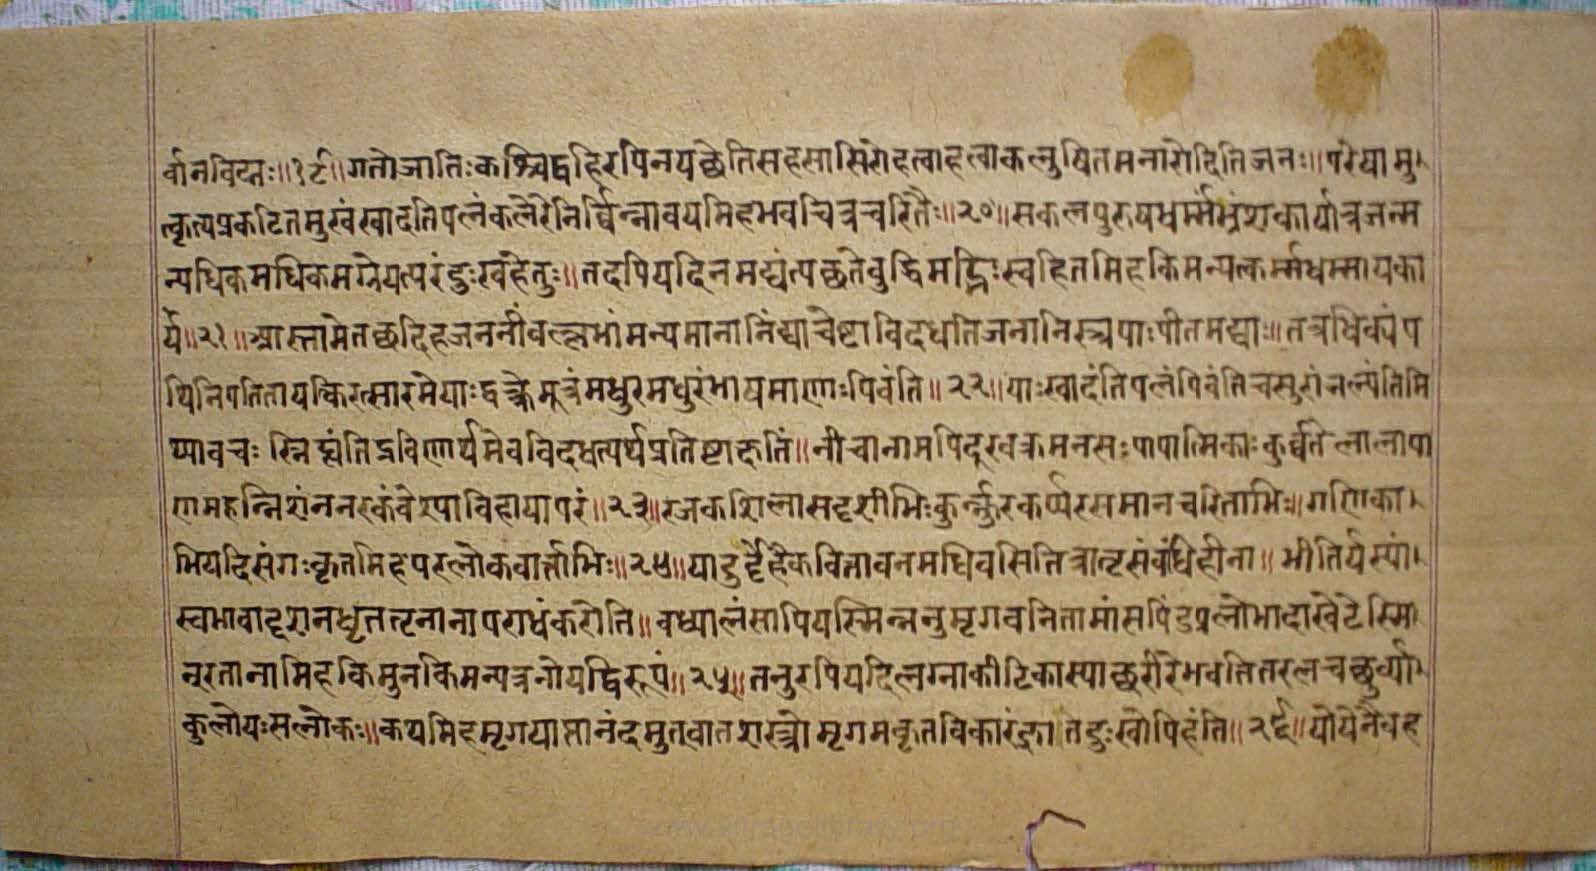 र्वानविदन्तः॥१९॥गतोज्ञातिःकश्चिद्वहिरपिनयद्येतिसहसासिरोहत्वाहत्वाकलुषितमनारोदितिजनः॥परेषामु
त्कृत्यप्रकटितमुखंखादतिपलंकलेरेनिर्विन्नावयमिहभवच्चित्रचरितैः॥२०॥सकलपुरुषधर्म्मभ्रंशकार्यत्रजन्म
न्यधिकमधिकमग्रेयत्परंदुःखहेतुः॥तदपियदिनमद्यंत्यज्यतेबुद्धिमद्भिःस्वहितमिहकिमन्यत्कर्म्मधर्म्मायका
र्यं॥२१॥आस्तामेतद्यदिहजननींवल्लभांमन्यमानानिंद्याचेष्टाविदधतिजनानिस्त्रपाःपीतमद्याः॥तत्राधिक्यंप
थिनिपतितायत्किरत्सारमेयाःद्वक्त्रेमूत्रंमधुरमधुरंभाषमाणाःपिबंति॥२२॥याःखादंतिपलंपिबंतिचसुरांजल्पंतिमि
थ्यावचःस्निह्यंतिद्रविणार्थमेवविदधत्यर्थप्रतिष्टाक्षतिं॥नीचानामपिदूरवक्रमनसःपापात्मिकाःकुर्वतेलालापा
णामहर्न्निशंननरकंवेश्याविहायापरं॥२३॥रजकशिलासदृशीभिःकुर्क्कुरकर्प्परसमानचरिताभिः॥गणिका
भिर्यदिसंगःकृतमिहपरलोकवार्त्ताभिः॥२४॥यादुर्द्देहैकवित्तावनमधिवसितित्रातृसंबंधिहीना॥भीतिर्यस्यां
स्वभावाद्दशनधृततृनानापराधंकरोति॥वध्यालंसापियस्मिन्ननुमृगवनितामांसपिंडप्रलोभादाखेटेस्मि
न्रतानामिहकिमुनकिमन्यत्रनोयद्विरूपं॥२५॥तनुरपियदिलग्नाकीटिकास्याच्छरीरेभवतितरलचक्षुर्व्या
कुलोयःसलोकः॥कथमिहमृगयाप्तानंदमुत्खातशस्त्रोमृगमकृतविकारंज्ञातदुःखोपिहंति॥२६॥योयेनैवह